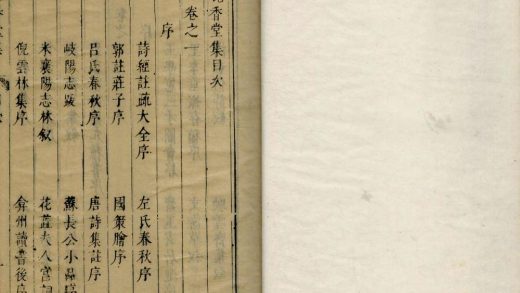 香堂集目次
卷之一
序
詩經註疏大全序
左氏春秋序
郭註莊子序
國策膾序
呂氏春秋序
唐詩集註序
岐陽志跋
蘇長公小品序
米襄陽志林叙
花蕊夫人宮詞
倪雲林集序
弇州讀書後序